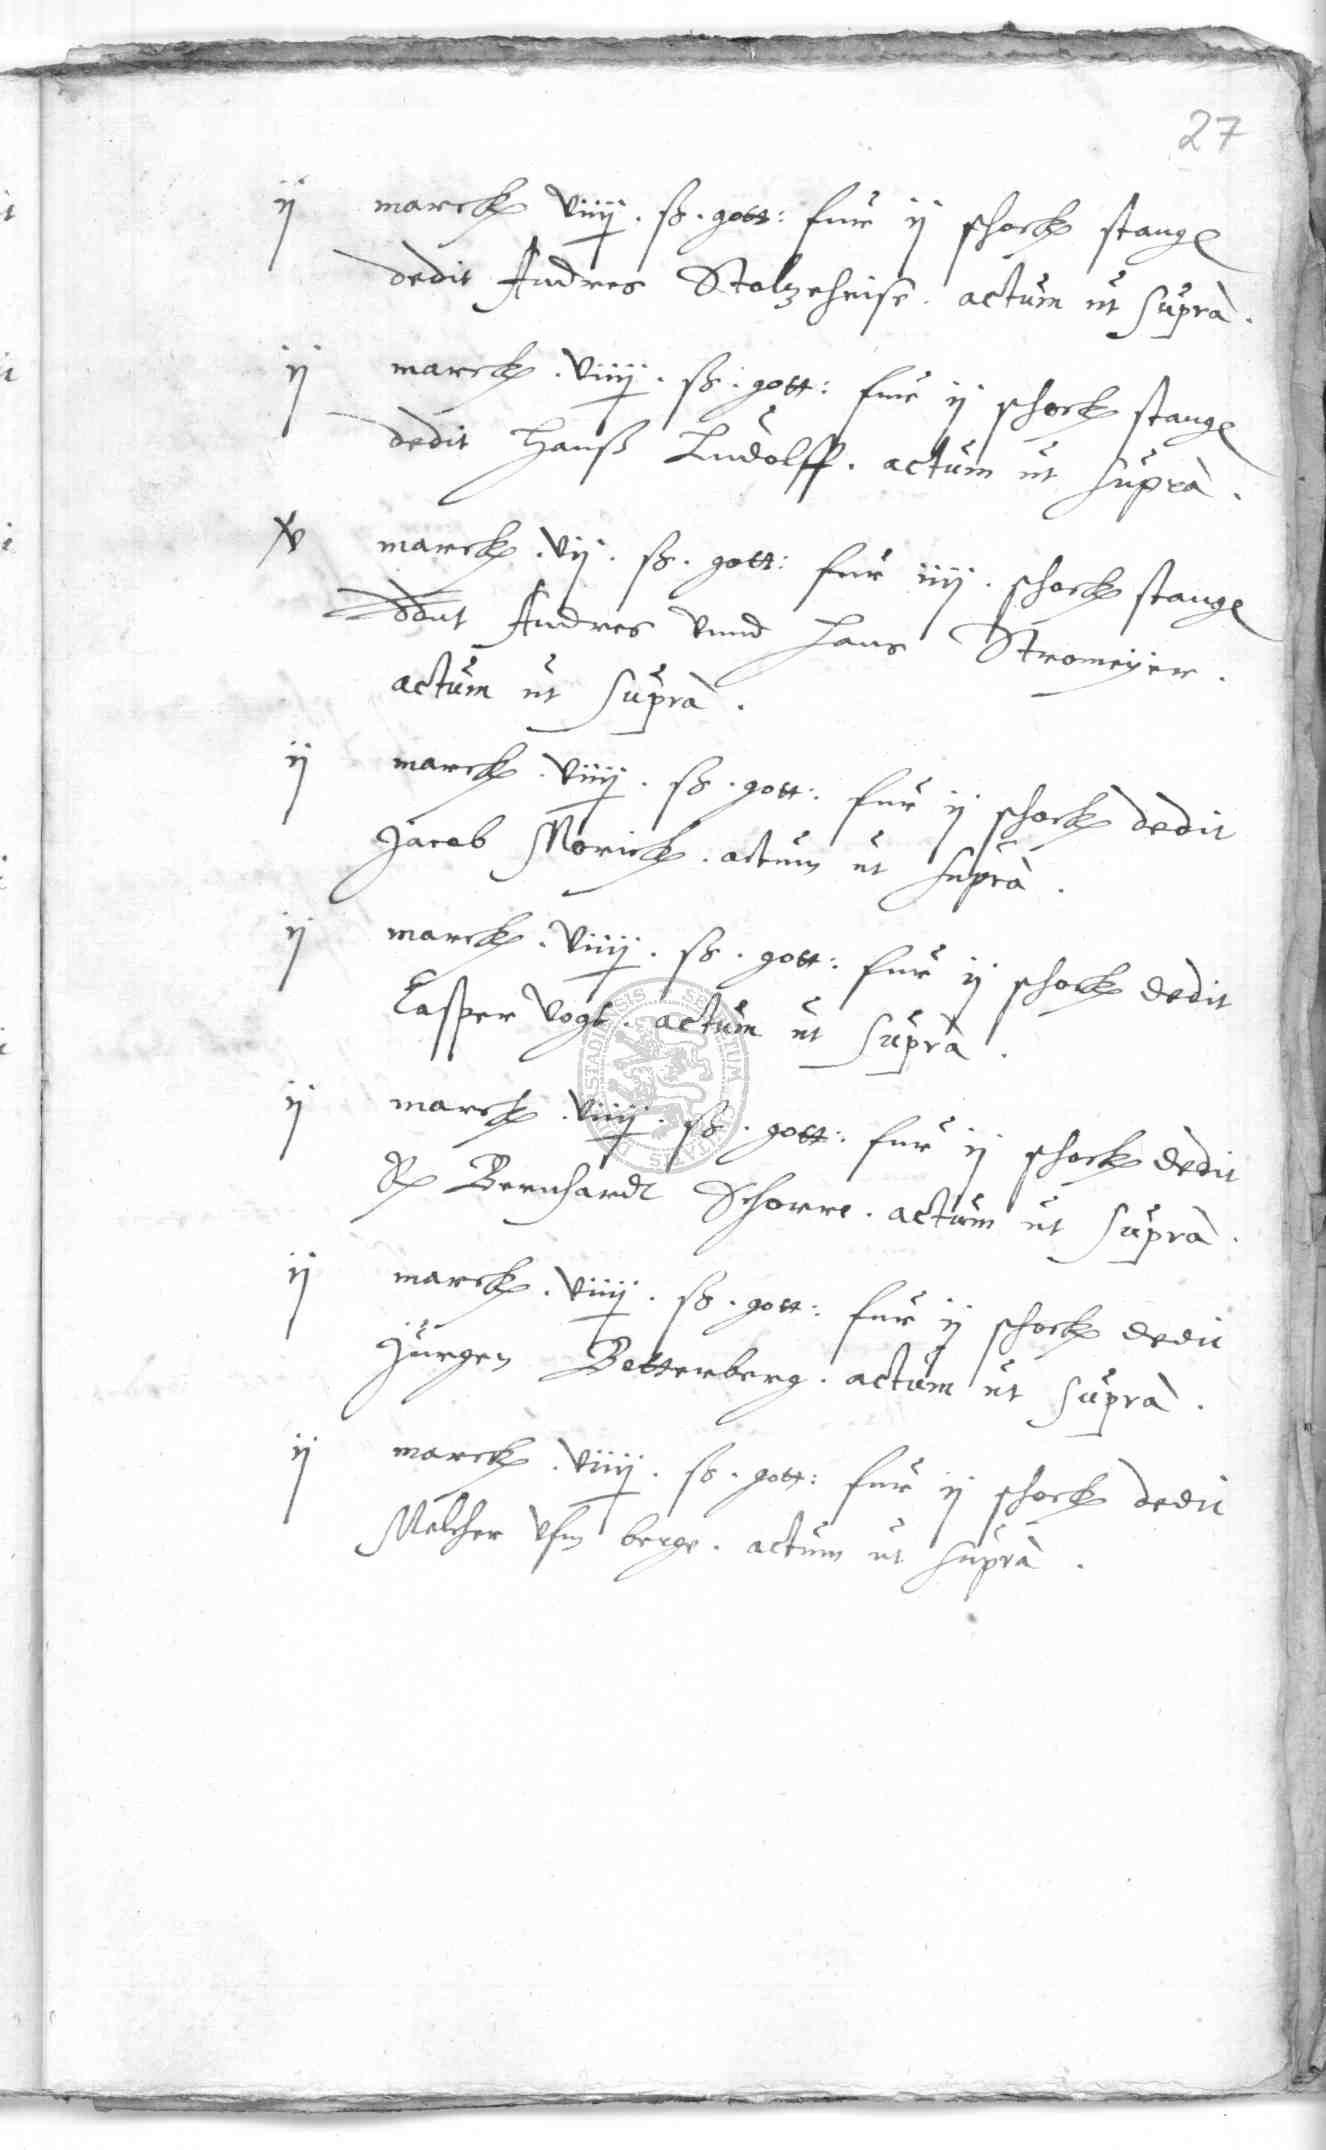 27
ij marck viiij . ß . gott: fur ij schock stang
dedit Andres Stolzeheise . actum ut supra .
ij marck . viiij . ß . gott: fur ij schock stang
dedit Hanß Ludolff . actum ut supra .
v marck . vij . ß . gott: fur iiij . schock stang
ddnt Andres vnnd Hans Stromeyer .
actum ut supra .
ij marck . viiij . ß . gott: fur ij schock dedit
Jacob Morick . actum ut supra .
ij marck . viiij . ß . gott: fur ij schock dedit
Casper Vogt . actum ut supra .
ij marck . viiij . ß . gott: fur ij schock dedit
Bernhardt Schorre . actum ut supra .
ij marck . viiij . ß . gott: fur ij schock dedit
Jurgen Betterberg . actum ut supra .
ij marck . viiij . ß . gott: fur ij schock dedit
Melcher vfm berge . actum ut supra .